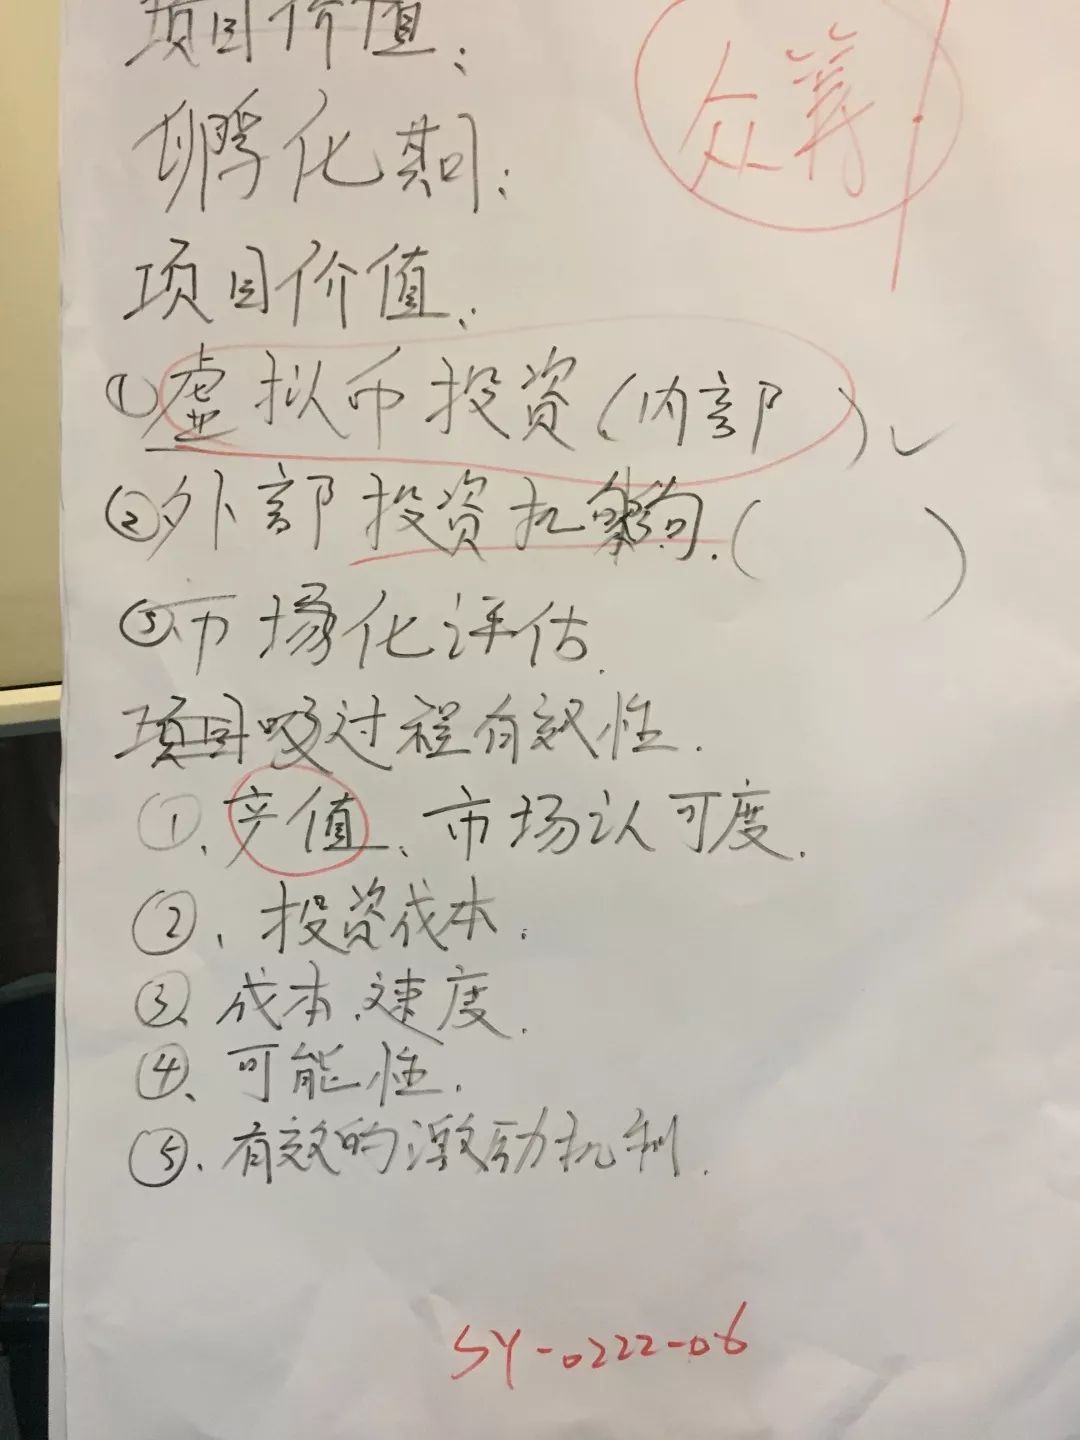 项目价值：
众筹
孵化期：
项目价值：
①虚拟币投资（内部）✓
②外部投资机构.（ ）
③、市场化评估.
过程有效性.
①、产值、市场认可度.
②、投资成本.
③、成本.速度.
④、可能性.
⑤、有效的激励机制.
SY-0222-06